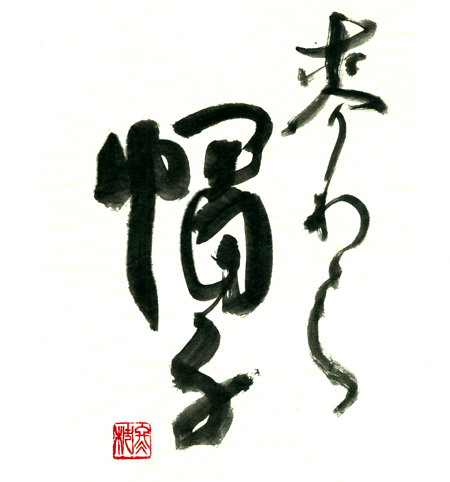 麦わら
帽子